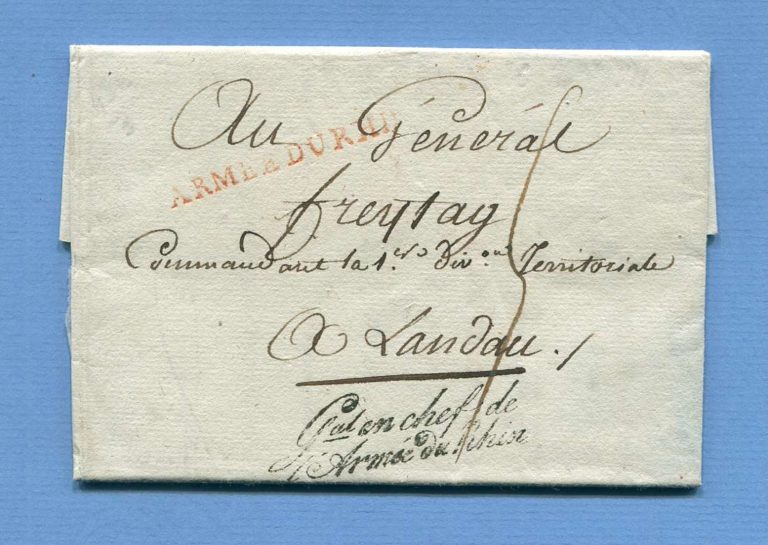 Au Général
ARMÉE DU RHIN
freytag
Commandant la 1.re Div.on Territoriale
A Landau.
Gal en chef de
l'Armée du Rhin